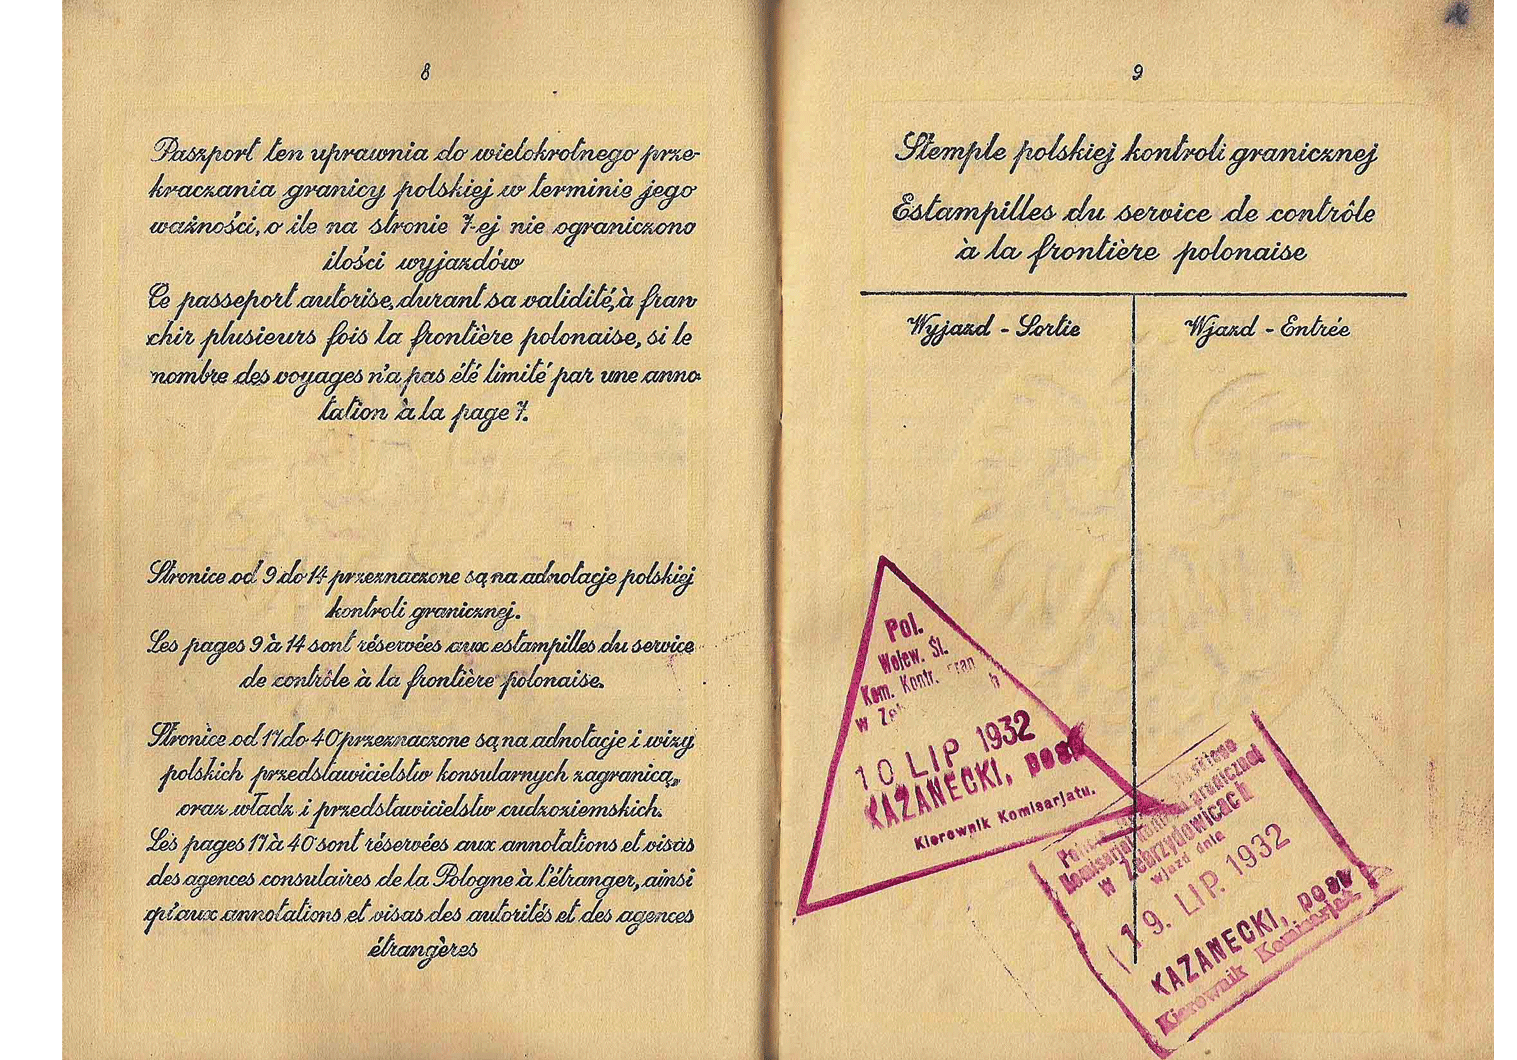 8
Paszport ten uprawnia do wielokrotnego prze-
kraczania granicy polskiej w terminie jego
ważności, o ile na stronie 7-ej nie ograniczono
ilości wyjazdów
Ce passeport autorise, durant sa validité, à fran
chir plusieurs fois la frontière polonaise, si le
nombre des voyages n'a pas été limité par une anno-
tation à la page 7.
Stronice od 9 do 14 przeznaczone są na adnotacje polskiej
kontroli granicznej.
Les pages 9 à 14 sont réservées aux estampilles du service
de contrôle à la frontière polonaise.
Stronice od 17 do 40 przeznaczone są na adnotacje i wizy
polskich przedstawicielstw konsularnych zagranicą,
oraz władz i przedstawicielstw cudzoziemskich.
Les pages 17 à 40 sont réservées aux annotations et visas
des agences consulaires de la Pologne à l'étranger, ainsi
qu'aux annotations et visas des autorités et des agences
étrangères
9
Stemple polskiej kontroli granicznej
Estampilles du service de contrôle
à la frontière polonaise
Wyjazd - Sortie
Wjazd - Entrée
Pol.
Wojew. Śl.
Kom. Kontr.
w
10 LIP 1932
KAZANECKI, post
Kierownik Komisarjatu.
Śląskiego
Komisarjat granicznej
w Zebrzydowicach
wjazd dnia
19. LIP. 1932
KAZANECKI, post
Kierownik Komisarjat